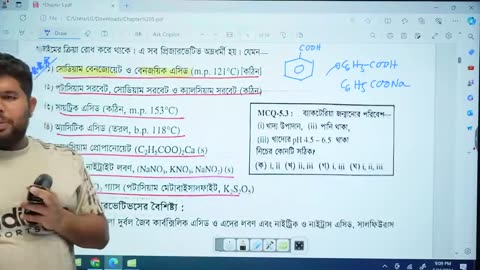 Chapter 5.pdf
File C:/Users/LG/Downloads/Chapter%205.pdf
Draw
of 35
ক্রিয়া রোধ করে থাকে। এ সব প্রিজারভেটিভ অম্লধর্মী হয়। যেমন—
সোডিয়াম বেনজোয়েট ও বেনজয়িক এসিড (m.p. 121°C) [কঠিন]
পটাসিয়াম সরবেট, সোডিয়াম সরবেট ও ক্যালসিয়াম সরবেট (কঠিন)
সাইট্রিক এসিড (কঠিন, m.p. 153°C)
অ্যাসিটিক এসিড (তরল, b.p. 118°C)
প্রোপানোয়েট (C₂H₅COO)₂Ca (s)
নাইট্রাইট লবণ, (NaNO₃, KNO₃, NaNO₂) (s)
গ্যাস (পটাসিয়াম মেটাবাইসালফাইট, K₂S₂O₅)
বৈশিষ্ট্য :
দুর্বল জৈব কার্বক্সিলিক এসিড ও এদের লবণ এবং নাইট্রিক ও নাইট্রাস এসিড, সালফিউরাস
COOH
C₆H₅COOH
C₆H₅COONa
MCQ-5.3 : ব্যাকটেরিয়া জন্মানোর পরিবেশ—
(i) খাদ্য উপাদান, (ii) পানি থাকা,
(iii) খাদ্যের pH 4.5 – 6.5 থাকা
নিচের কোনটি সঠিক?
(ক) i, ii (খ) ii, iii (গ) i, iii (ঘ) i, ii, iii
9:09 PM